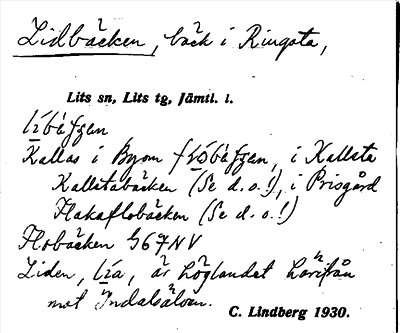 Lidbäcken, bäck i Ringsta,
Lits sn, Lits tg, Jämtl. l.
Kallas i Byom, i Kallsta
Kallstabäcken (Se d. o.!), i Prisgård
Hakaflobäcken (Se d. o.!)
Flobäcken G67NV
Liden, är höglandet härifrån
mot Indalsälven.
C. Lindberg 1930.